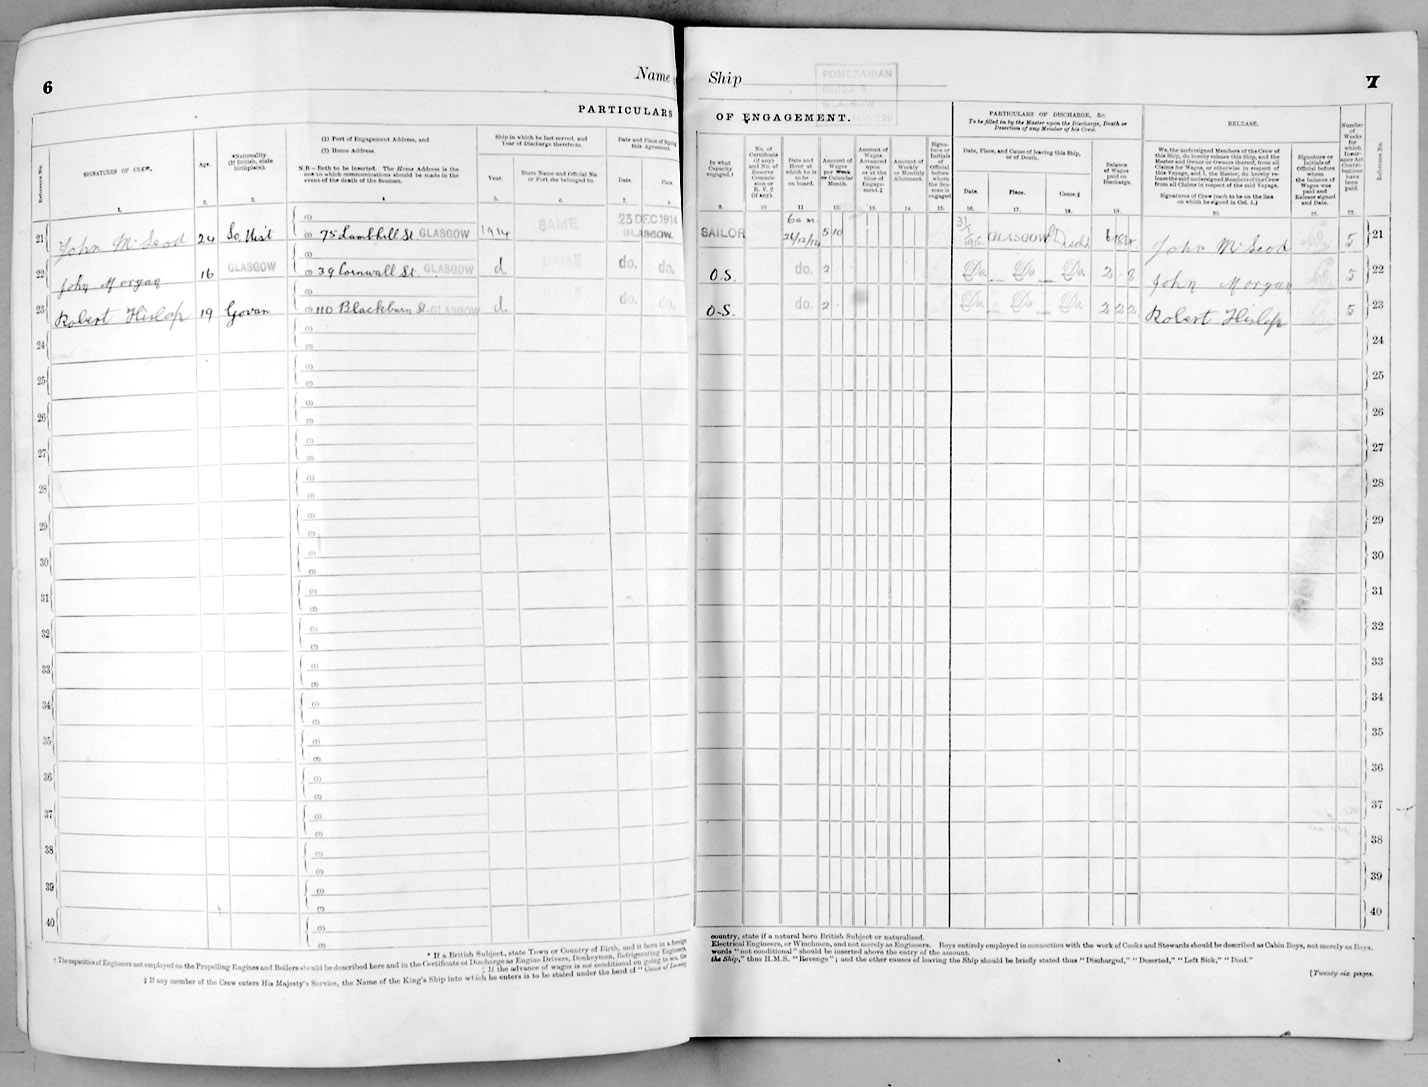 6
Name
PARTICULARS
Reference No.
SIGNATURES OF CREW.
Age.
*Nationality
(If British, state
birthplace).
(1) Port of Engagement Address, and
(2) Home Address.
N.B.—Both to be inserted. The Home Address is the
one to which communications should be made in the
event of the death of the Seaman.
Ship in which he last served, and
Year of Discharge therefrom.
Year.
State Name and Official No.
or Port she belonged to.
Date and Place of Signing
this Agreement.
Date.
Place.
1. 2. 3. 4. 5. 6. 7. 8.
21 John McLeod 24 So. Uist (1) (2) 75 Lambhill St. GLASGOW 1914 SAME 23 DEC 1914 GLASGOW.
22 John Morgan 16 GLASGOW (1) (2) 39 Cornwall St. GLASGOW d SAME do. do.
23 Robert Hislop 19 Govan (1) (2) 110 Blackburn St. GLASGOW d SAME do. do.
24 (1) (2)
25 (1) (2)
26 (1) (2)
27 (1) (2)
28 (1) (2)
29 (1) (2)
30 (1) (2)
31 (1) (2)
32 (1) (2)
33 (1) (2)
34 (1) (2)
35 (1) (2)
36 (1) (2)
37 (1) (2)
38 (1) (2)
39 (1) (2)
40 (1) (2)
* If a British Subject, state Town or Country of Birth, and if born in a foreign
† The capacities of Engineers not employed on the Propelling Engines and Boilers should be described here and in the Certificate of Discharge as Engine Drivers, Donkeymen, Refrigerating Engineers,
‡ If the advance of wages is not conditional on going to sea, the
§ If any member of the Crew enters His Majesty's Service, the Name of the King's Ship into which he enters is to be stated under the head of "Cause of leaving
Ship
POMERANIAN
GLASGOW
7
OF ENGAGEMENT.
In what
Capacity
engaged.†
No. of
Certificate
(if any)
and No. of
Reserve
Commis-
sion or
R. V. 2
(if any).
Date and
Hour at
which he is
to be
on board.
Amount of
Wages
per Week
or Calendar
Month.
Amount of
Wages
Advanced
upon
or at the
time of
Engage-
ment.‡
Amount of
Weekly
or Monthly
Allotment.
Signa-
ture or
Initials
of
Official
before
whom
the Sea-
man is
engaged
PARTICULARS OF DISCHARGE, &c.
To be filled in by the Master upon the Discharge, Death or
Desertion of any Member of his Crew.
Date, Place, and Cause of leaving this Ship,
or of Death.
Date.
Place.
Cause.§
Balance
of Wages
paid on
Discharge.
RELEASE.
We, the undersigned Members of the Crew of
this Ship, do hereby release this Ship, and the
Master and Owner or Owners thereof, from all
Claims for Wages, or otherwise in respect of
this Voyage, and I, the Master, do hereby re-
lease the said undersigned Members of the Crew
from all Claims in respect of the said Voyage.
Signatures of Crew (each to be on the line
on which he signed in Col. 1.)
Signature or
Initials of
Official before
whom
the balance of
Wages was
paid and
Release signed
and Date.
Number
of
Weeks
for
which
Insur-
ance Act
Contri-
butions
have
been
paid.
Reference No.
9. 10 11 12. 13. 14. 15. 16. 17. 18. 19. 20. 21. 22.
SAILOR 6 a m 24/12/14 5 10 GLASGOW Disch John McLeod 5 21
O.S. do. 2 Do. Do Do. 2 8 John Morgan 5 22
O.S. do. 2 Do. Do Do. 2 2 2 Robert Hislop 5 23
24
25
26
27
28
29
30
31
32
33
34
35
36
37
38
39
40
country, state if a natural born British Subject or naturalized.
Electrical Engineers, or Winchmen, and not merely as Engineers. Boys entirely employed in connection with the work of Cooks and Stewards should be described as Cabin Boys, not merely as Boys.
words "not conditional" should be inserted above the entry of the amount.
the Ship," thus H.M.S. "Revenge"; and the other causes of leaving the Ship should be briefly stated thus "Discharged," "Deserted," "Left Sick," "Died."
[Twenty-six pages.